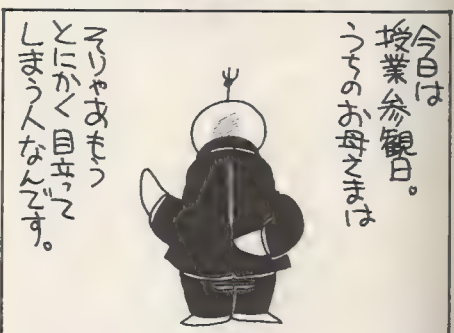 今日は
授業参観日。
うちのお母さまは
そりゃあもう
とにかく目立って
しまう人なんです。